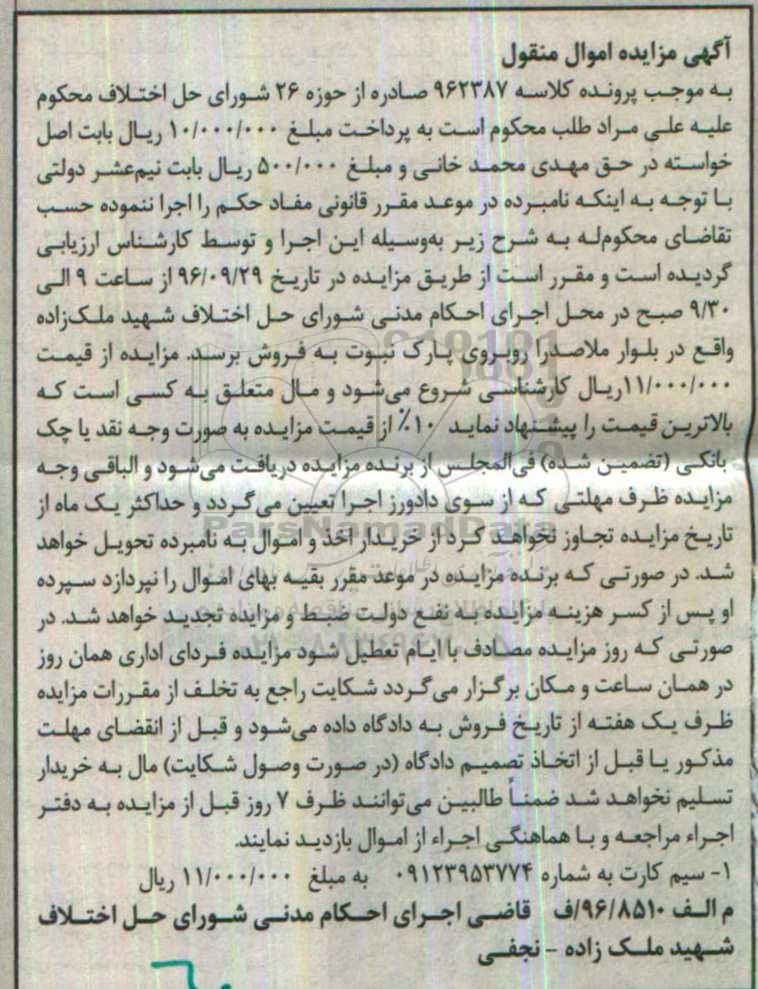 آگهی مزایده اموال منقول
به موجب پرونده کلاسه ۹۶۲۳۸۷ صادره از حوزه ۲۶ شورای حل اختلاف محکوم
علیه علی مراد طلب محکوم است به پرداخت مبلغ ۱۰/۰۰۰/۰۰۰ ریال بابت اصل
خواسته در حق مهدی محمد خانی و مبلغ ۵۰۰/۰۰۰ ریال بابت نیم‌عشر دولتی
با توجه به اینکه نامبرده در موعد مقرر قانونی مفاد حکم را اجرا ننموده حسب
تقاضای محکوم‌له به شرح زیر به‌وسیله این اجرا و توسط کارشناس ارزیابی
گردیده است و مقرر است از طریق مزایده در تاریخ ۹۶/۰۹/۲۹ از ساعت ۹ الی
۹/۳۰ صبح در محل اجرای احکام مدنی شورای حل اختلاف شهید ملک‌زاده
واقع در بلوار ملاصدرا روبروی پارک نبوت به فروش برسد. مزایده از قیمت
۱۱/۰۰۰/۰۰۰ریال کارشناسی شروع می‌شود و مال متعلق به کسی است که
بالاترین قیمت را پیشنهاد نماید ۱۰٪ از قیمت مزایده به صورت وجه نقد یا چک
بانکی (تضمین شده) فی‌المجلس از برنده مزایده دریافت می‌شود و الباقی وجه
مزایده ظرف مهلتی که از سوی دادورز اجرا تعیین می‌گردد و حداکثر یک ماه از
تاریخ مزایده تجاوز نخواهد کرد از خریدار اخذ و اموال به نامبرده تحویل خواهد
شد. در صورتی که برنده مزایده در موعد مقرر بقیه بهای اموال را نپردازد سپرده
او پس از کسر هزینه مزایده به نفع دولت ضبط و مزایده تجدید خواهد شد. در
صورتی که روز مزایده مصادف با ایام تعطیل شود مزایده فردای اداری همان روز
در همان ساعت و مکان برگزار می‌گردد شکایت راجع به تخلف از مقررات مزایده
ظرف یک هفته از تاریخ فروش به دادگاه داده می‌شود و قبل از انقضای مهلت
مذکور یا قبل از اتخاذ تصمیم دادگاه (در صورت وصول شکایت) مال به خریدار
تسلیم نخواهد شد ضمناً طالبین می‌توانند ظرف ۷ روز قبل از مزایده به دفتر
اجراء مراجعه و با هماهنگی اجراء از اموال بازدید نمایند.
۱- سیم کارت به شماره ۰۹۱۲۳۹۵۳۷۷۴ به مبلغ ۱۱/۰۰۰/۰۰۰ ریال
م الف ۹۶/۸۵۱۰/ف قاضی اجرای احکام مدنی شورای حل اختلاف
شهید ملک زاده - نجفی
ParsNamadData